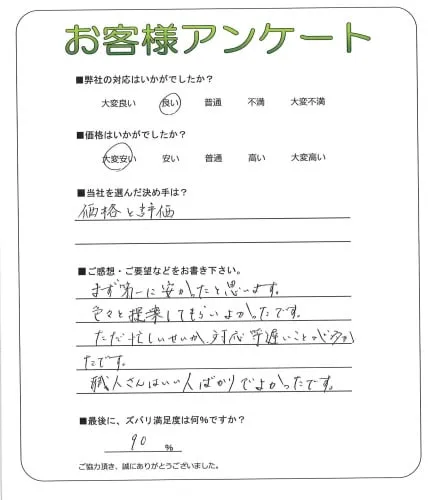 お客様アンケート
■弊社の対応はいかがでしたか?
大変良い 良い 普通 不満 大変不満
■価格はいかがでしたか?
大変安い 安い 普通 高い 大変高い
■当社を選んだ決め手は?
価格と評価
■ご感想・ご要望などをお書き下さい。
まず第一に安かったと思います。
色々と提案してもらいよかったです。
ただ忙しいせいか、対応等遅いことが多かっ
たです。
職人さんはいい人ばかりでよかったです。
■最後に、ズバリ満足度は何%ですか?
90 %
ご協力頂き、誠にありがとうございました。